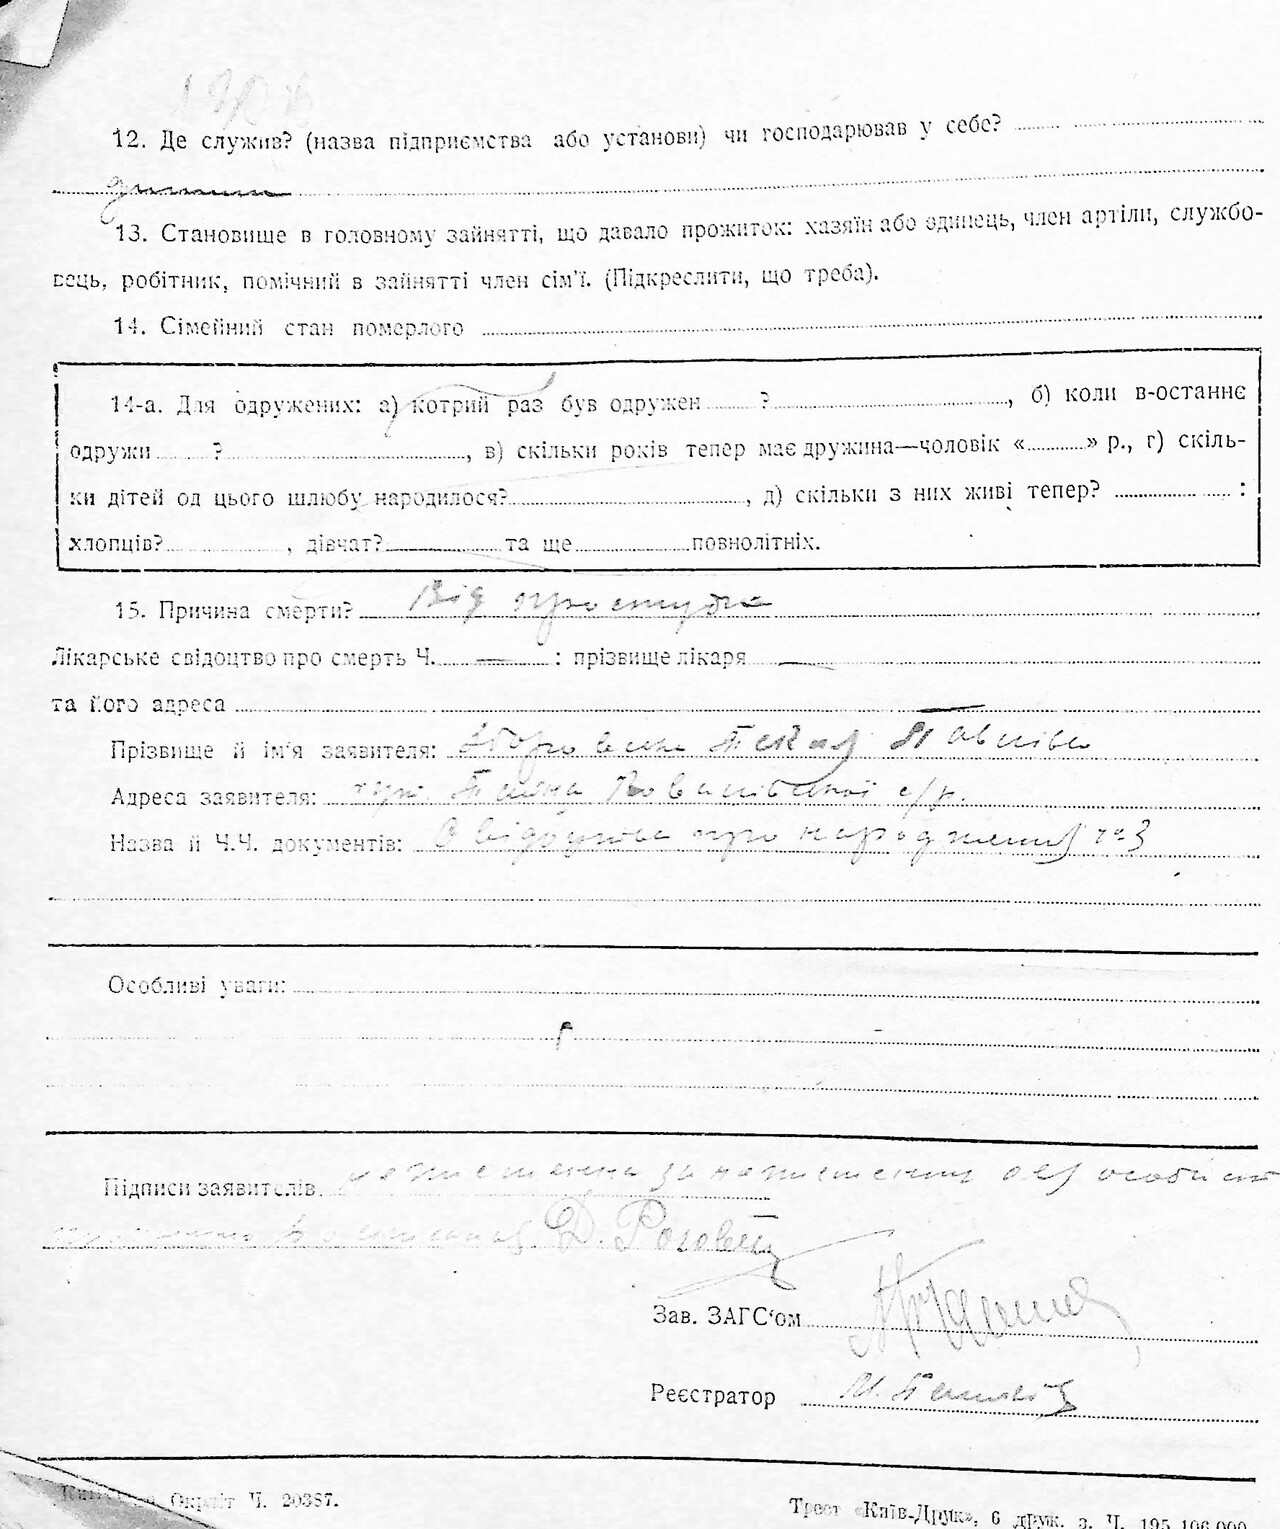 12. Де служив? (назва підприємства або установи) чи господарював у себе?
дитина
13. Становище в головному зайнятті, що давало прожиток: хазяїн або одинець, член артілі, службо-
вець, робітник, помічний в зайнятті член сім'ї. (Підкреслити, що треба).
14. Сімейний стан померлого
14-а. Для одружених: а) котрий раз був одружен ? , б) коли в-останнє
одружи ? , в) скільки років тепер має дружина—чоловік « » р., г) скіль-
ки дітей од цього шлюбу народилося? , д) скільки з них живі тепер? :
хлопців? , дівчат? та ще повнолітніх.
15. Причина смерти? Від простуди
Лікарське свідоцтво про смерть Ч. — : прізвище лікаря —
та його адреса —
Прізвище й ім'я заявителя: Павлівна
Адреса заявителя: с/р.
Назва й Ч.Ч. документів: Свідоцтво про народження № 3
Особливі уваги:
Підписи заявителів неписьменна за неписьменну
Д. Роговец
Зав. ЗАГС'ом
Реєстратор
Окрліт Ч. 20387.
Трест «Київ-Друк», 6 друк. з. Ч. 195-106.000